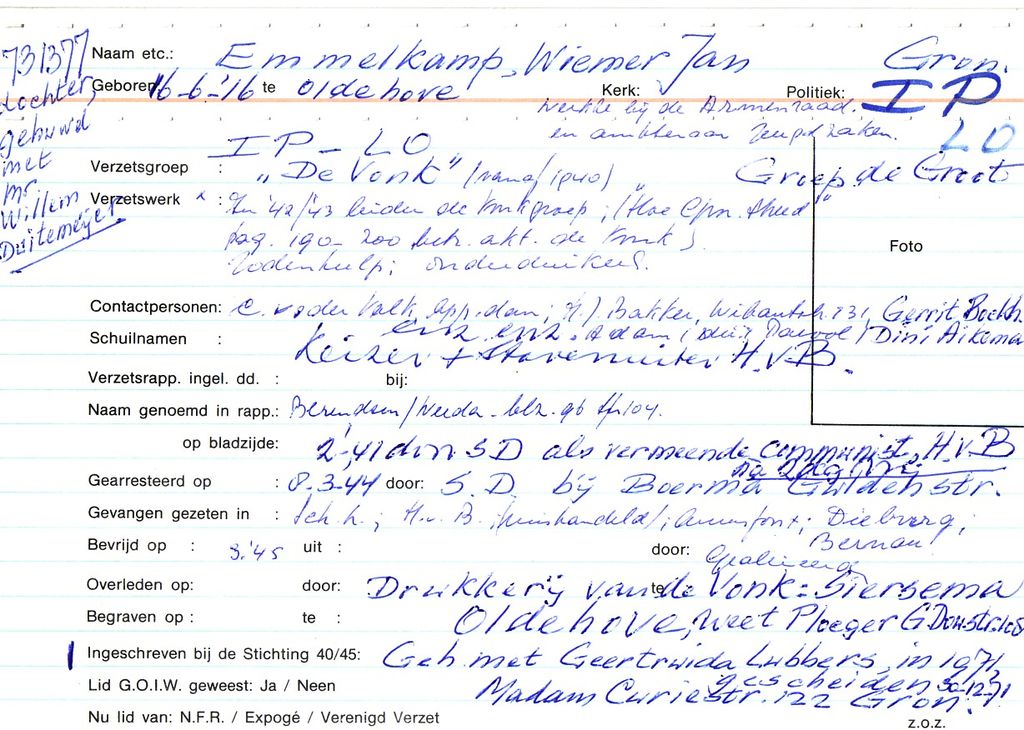 731377
dochter
gehuwd
met
mr.
Willem
Duitemeijer
Naam etc.: Emmelkamp, Wiemer Jan Gron.
Geboren 16-6-'16 te Oldehove Kerk: Politiek: IP
werkte bij de Armenraad.
en ambtenaar Jeugdzaken. LO
IP - LO
Verzetsgroep : "De Vonk" (vanaf 1940) Groep de Groot
Verzetswerk : In '42/'43 leider de Vonkgroep;
pag. 190-200 betr. akt. de Vonk;
Jodenhulp; onderduikers.
Foto
Contactpersonen: C. v. der Valk, App.dam; H.J. Bakker, 231, Gerrit Boekh.
enz. enz. A'dam, Dini Aikema
Schuilnamen : Keizer + H.v.B.
Verzetsrapp. ingel. dd. : bij:
Naam genoemd in rapp.: Berendsen/Weeda blz. 96 104.
op bladzijde: 2-'41 door SD als vermeende communist, H.v.B
na 2 dg vrij
Gearresteerd op : 8-3-44 door: S.D. bij Boerma Guldenstr.
Gevangen gezeten in : Sch.h.; H.v.B. (mishandeld); Amersfoort; Dieburg;
Bernau
Bevrijd op : 3.'45 uit : door: Geallieerden
Overleden op: door: te Drukkerij van de Vonk: Siersema
Begraven op : te : Oldehove, weet Ploeger G. Doustr. 108
Ingeschreven bij de Stichting 40/45: Geh. met Geertruida Lubbers, in 1971
gescheiden 30-12-71
Lid G.O.I.W. geweest: Ja / Neen Madam Curiestr. 122 Gron.
Nu lid van: N.F.R. / Expogé / Verenigd Verzet
z.o.z.